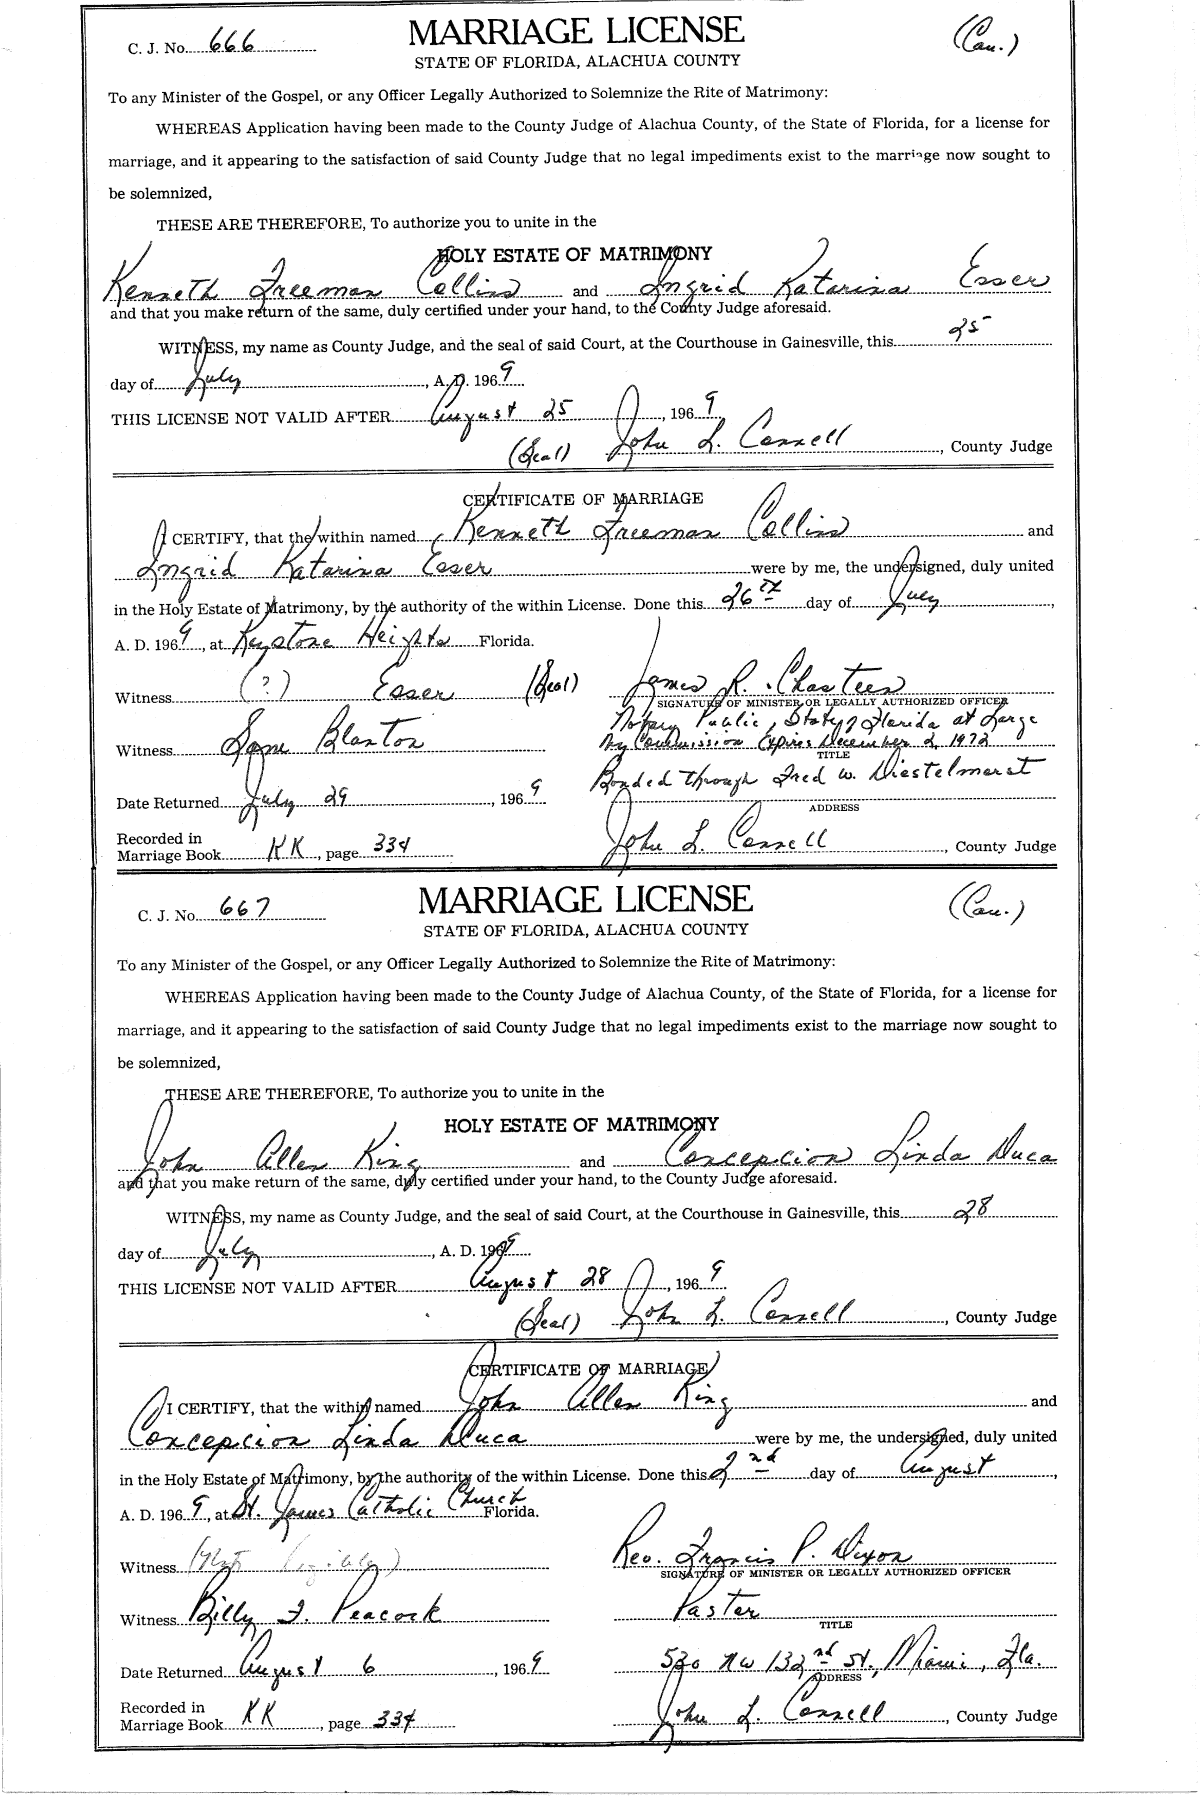 C. J. No. 666 MARRIAGE LICENSE (Cau.)
STATE OF FLORIDA, ALACHUA COUNTY
To any Minister of the Gospel, or any Officer Legally Authorized to Solemnize the Rite of Matrimony:
WHEREAS Application having been made to the County Judge of Alachua County, of the State of Florida, for a license for
marriage, and it appearing to the satisfaction of said County Judge that no legal impediments exist to the marriage now sought to
be solemnized,
THESE ARE THEREFORE, To authorize you to unite in the
HOLY ESTATE OF MATRIMONY
Kenneth Freeman Collins and Ingrid Katarina Esser
and that you make return of the same, duly certified under your hand, to the County Judge aforesaid.
WITNESS, my name as County Judge, and the seal of said Court, at the Courthouse in Gainesville, this 25
day of July, A. D. 1969
THIS LICENSE NOT VALID AFTER August 25, 1969
(Seal) John L. Connell, County Judge
CERTIFICATE OF MARRIAGE
I CERTIFY, that the within named Kenneth Freeman Collins and
Ingrid Katarina Esser were by me, the undersigned, duly united
in the Holy Estate of Matrimony, by the authority of the within License. Done this 26th day of July,
A. D. 1969, at Keystone Heights Florida.
Witness (?) Esser (Seal) James R. Chasteen
SIGNATURE OF MINISTER OR LEGALLY AUTHORIZED OFFICER
Notary Public, State of Florida at Large
Witness Blanton My Commission Expires December 2, 1972
TITLE
Bonded through Fred W. Diestelhorst
Date Returned July 29, 1969
ADDRESS
Recorded in
Marriage Book KK, page 334 John L. Connell, County Judge
C. J. No. 667 MARRIAGE LICENSE (Cau.)
STATE OF FLORIDA, ALACHUA COUNTY
To any Minister of the Gospel, or any Officer Legally Authorized to Solemnize the Rite of Matrimony:
WHEREAS Application having been made to the County Judge of Alachua County, of the State of Florida, for a license for
marriage, and it appearing to the satisfaction of said County Judge that no legal impediments exist to the marriage now sought to
be solemnized,
THESE ARE THEREFORE, To authorize you to unite in the
HOLY ESTATE OF MATRIMONY
John Allen King and Concepcion Linda Duca
and that you make return of the same, duly certified under your hand, to the County Judge aforesaid.
WITNESS, my name as County Judge, and the seal of said Court, at the Courthouse in Gainesville, this 28
day of July, A. D. 1969
THIS LICENSE NOT VALID AFTER August 28, 1969
(Seal) John L. Connell, County Judge
CERTIFICATE OF MARRIAGE
I CERTIFY, that the within named John Allen King and
Concepcion Linda Duca were by me, the undersigned, duly united
in the Holy Estate of Matrimony, by the authority of the within License. Done this 2nd day of August,
A. D. 1969, at St. James Catholic Church Florida.
Witness Rev. Francis P. Dixon
SIGNATURE OF MINISTER OR LEGALLY AUTHORIZED OFFICER
Witness Billy J. Peacock Pastor
TITLE
Date Returned August 6, 1969 530 NW 132nd St., Miami, Fla.
ADDRESS
Recorded in
Marriage Book KK, page 334 John L. Connell, County Judge